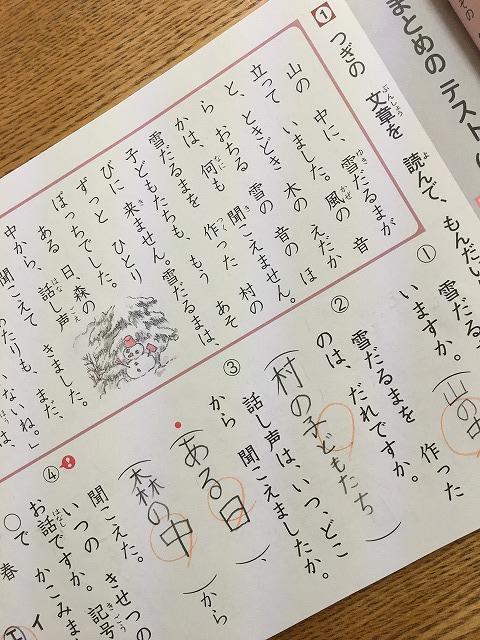 まとめの テスト
1 つぎの 文章を 読んで、もんだい
山の 中に、雪だるまが
立って いました。風の 音
と、ときどき 木の えだか
ら おちる 雪の 音の ほ
かは、何も 聞こえません。
雪だるまを 作った 村の
子どもたちも、もう あそ
びに 来ません。雪だるまは、
ずっと ひとり
ぼっちでした。
ある 日、森の
中から、話し声
聞こえて きました。
まだ、
いないね。」
は、
① 雪だる
いますか。
(山の中
② 雪だるまを 作った
のは、だれですか。
(村の子どもたち)
③ 話し声は、いつ、どこ
から 聞こえましたか。
(ある日)、
(森の中)から
聞こえた。
④ いつの きせつの
お話ですか。記号
○で かこみま
春 イ
エ